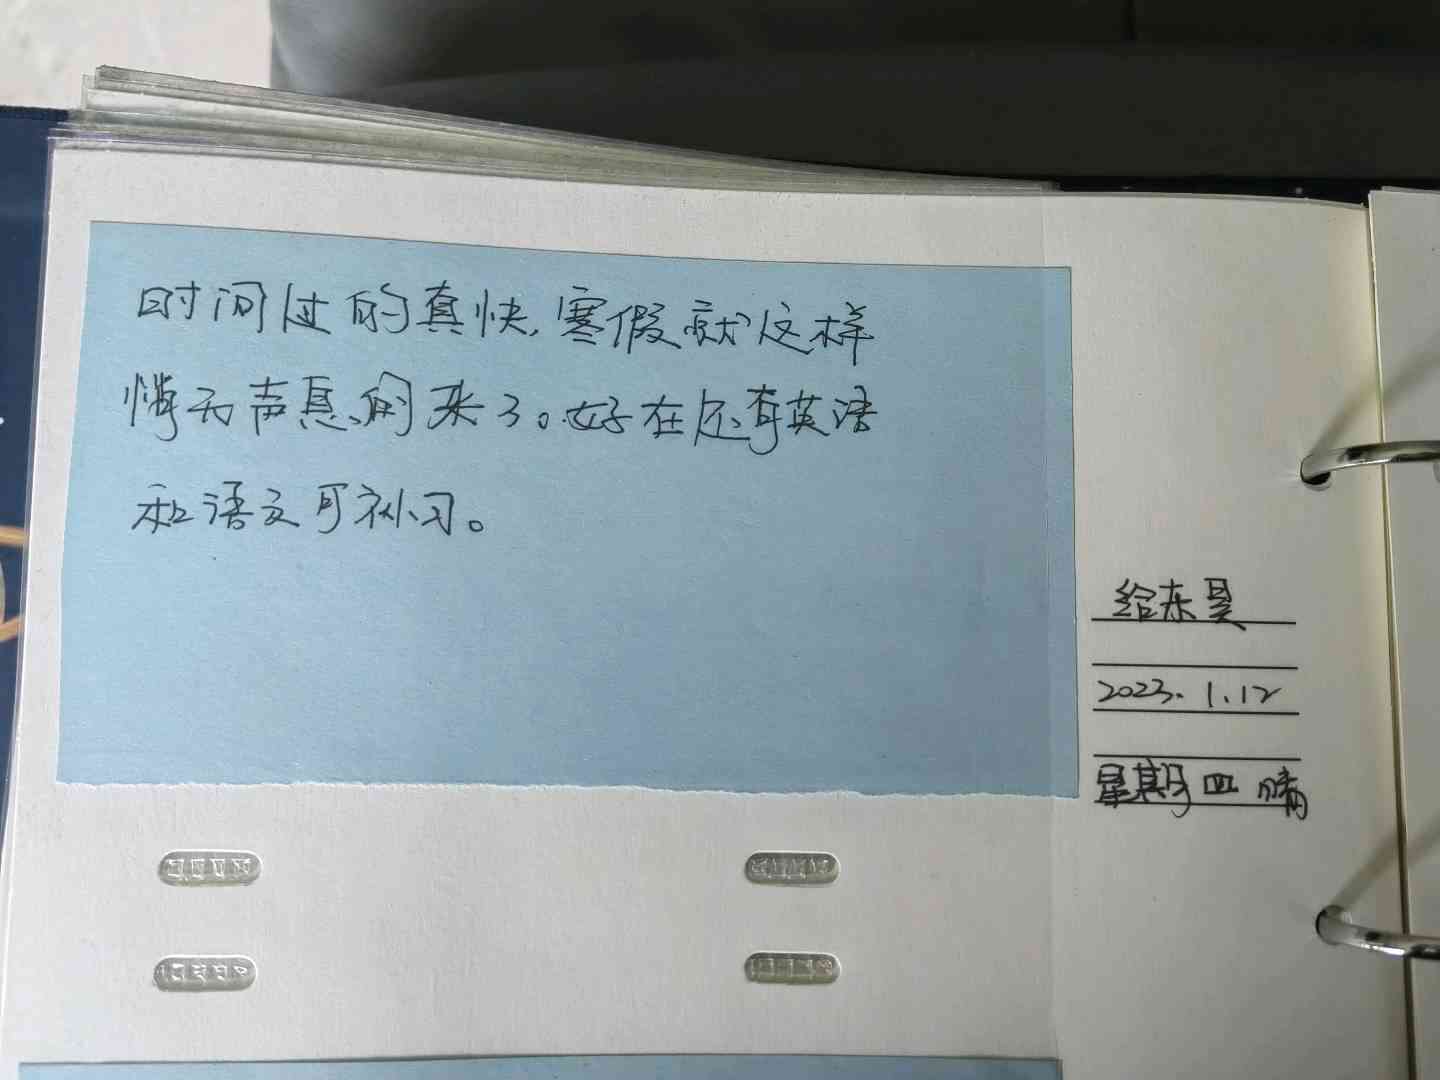 时间过的真快,寒假就这样
悄无声息的来了。好在还有英语
和语文可补习。
给东昊
2023.1.12
星期四 晴